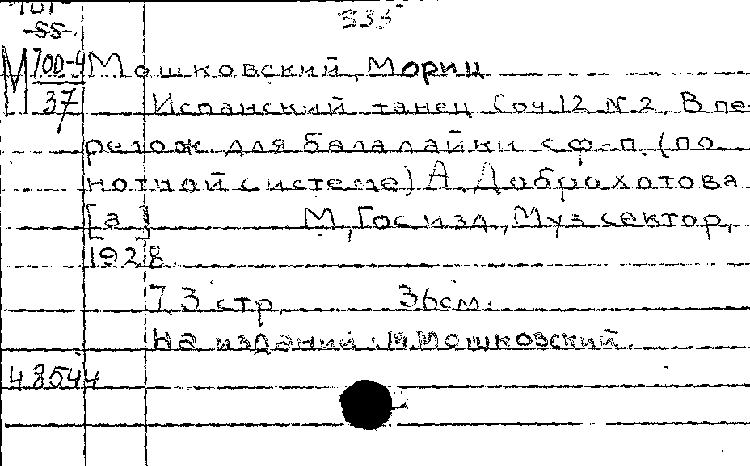 335
-55-
М 700-4 Мошковский, Мориц
37 Испанский танец Соч 12 № 2. В пе-
релож. для балалайки с ф-п. (по
нотной системе) А. Доброхотова
[а] М, Гос изд, Муз сектор,
1928.
7, 3 стр, 36см.
На издании: М. Мошковский.
48544